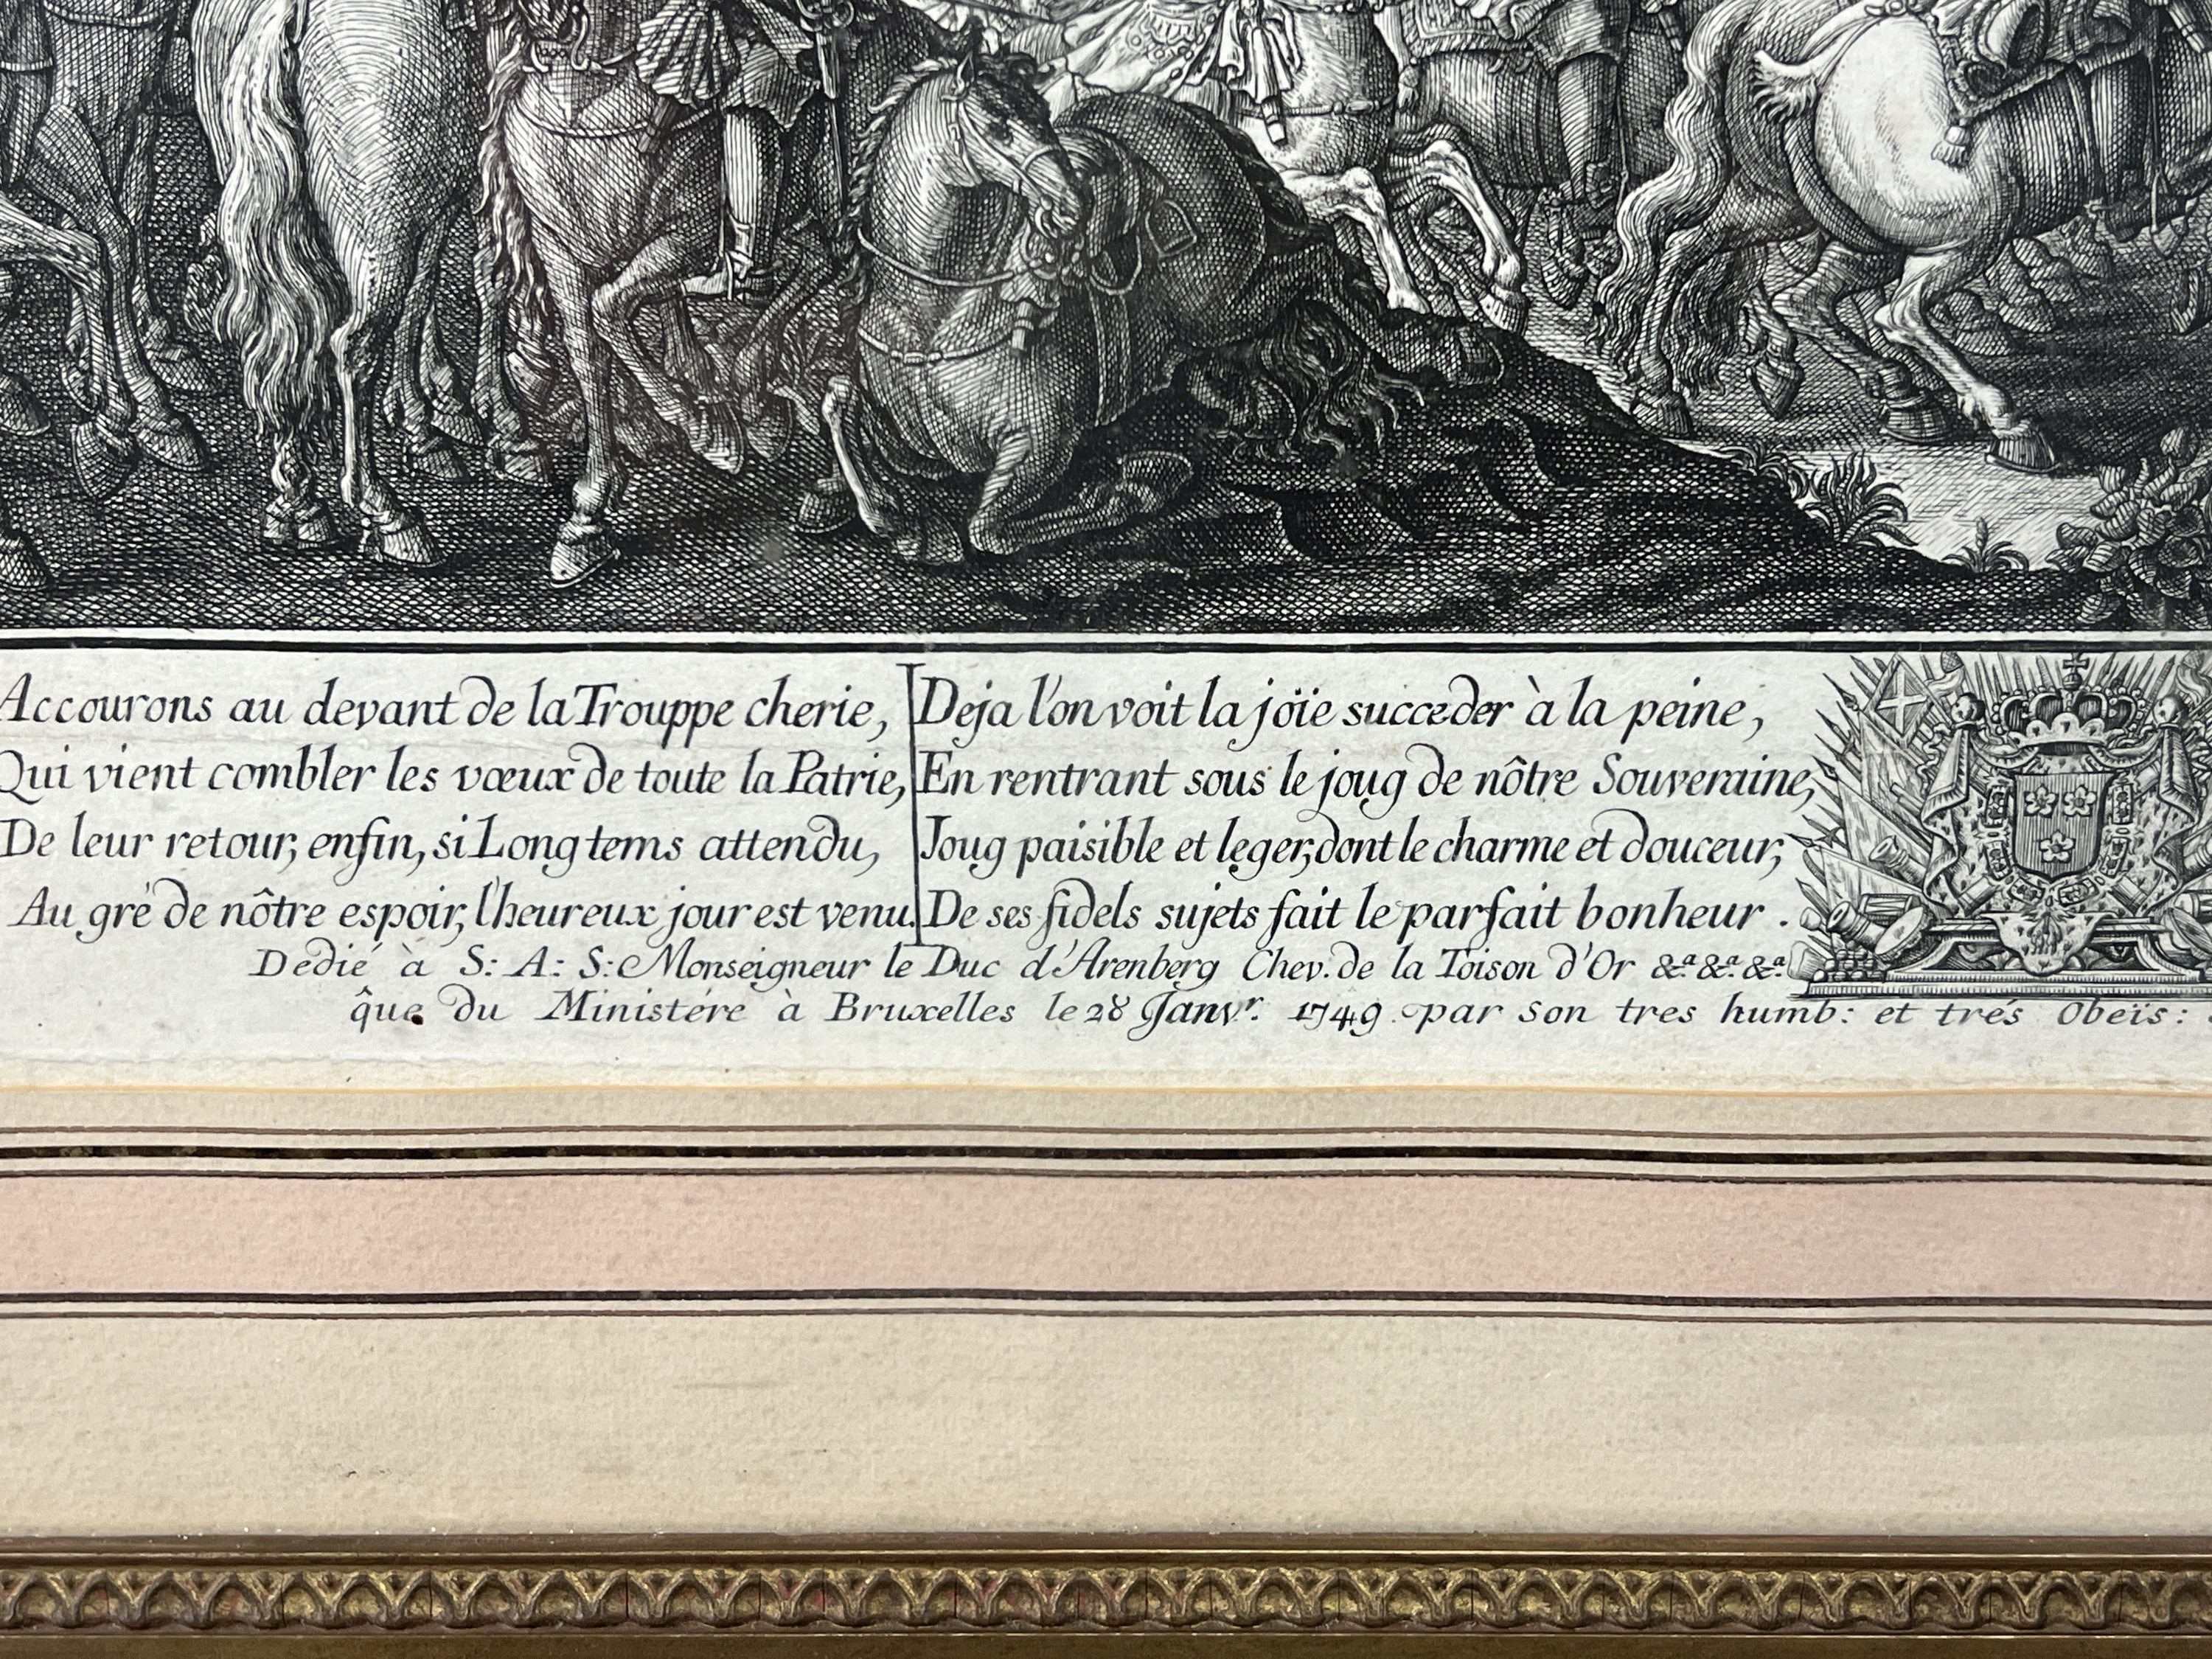 Accourons au devant de la Trouppe cherie,
Qui vient combler les vœux de toute la Patrie,
De leur retour, enfin, si Long tems attendu,
Au gré de nôtre espoir, l'heureux jour est venu.
Deja l'on voit la joïe succeder à la peine,
En rentrant sous le joug de nôtre Souveraine,
Joug paisible et leger, dont le charme et douceur,
De ses fidels sujets fait le parfait bonheur.
Dedié à S: A: S: Monseigneur le Duc d'Arenberg Chev. de la Toison d'Or &a. &a. &a.
que du Ministére à Bruxelles le 28 Janvr. 1749. par son tres humb: et trés Obeïs: